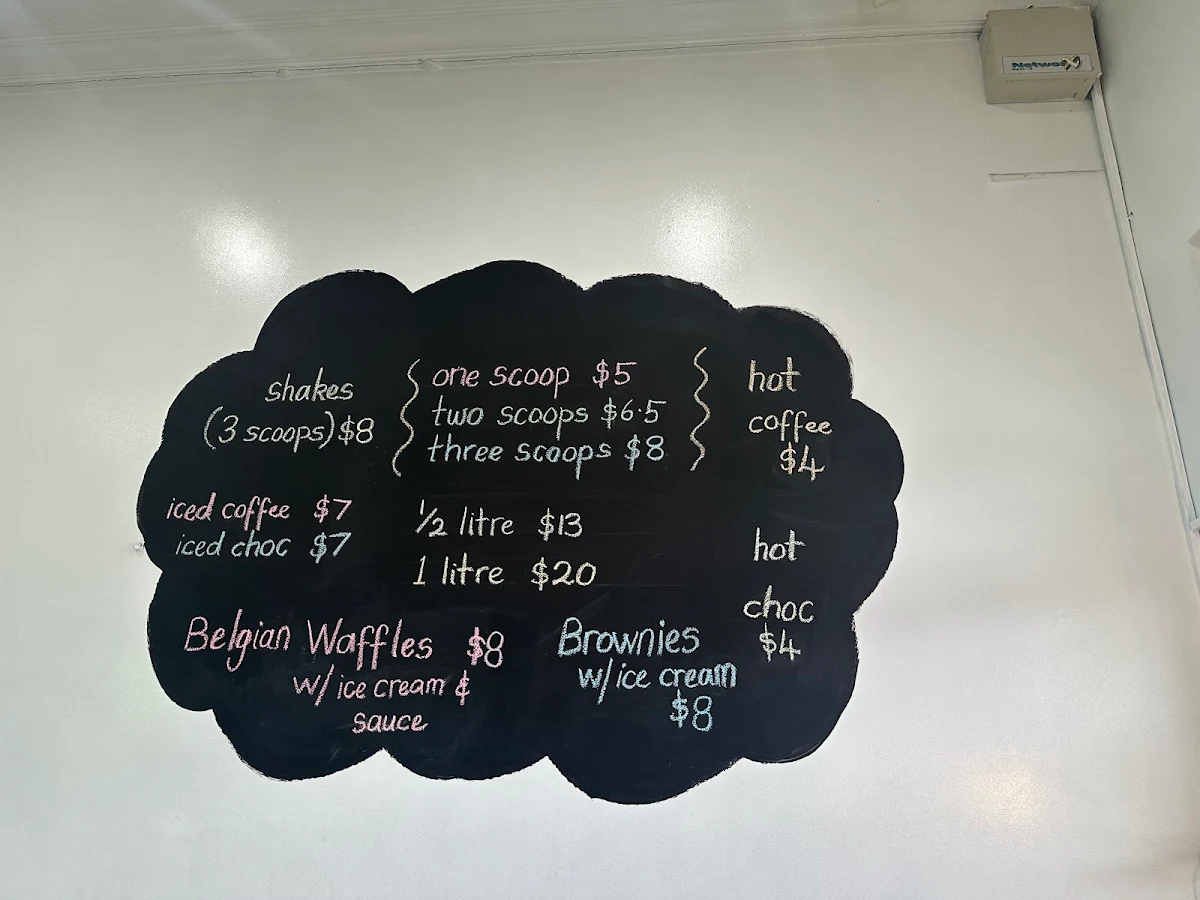 shakes
(3 scoops) $8
one scoop $5
two scoops $6.5
three scoops $8
hot
coffee
$4
iced coffee $7
iced choc $7
1/2 litre $13
1 litre $20
hot
choc
$4
Belgian Waffles $8
w/ ice cream &
sauce
Brownies
w/ ice cream
$8